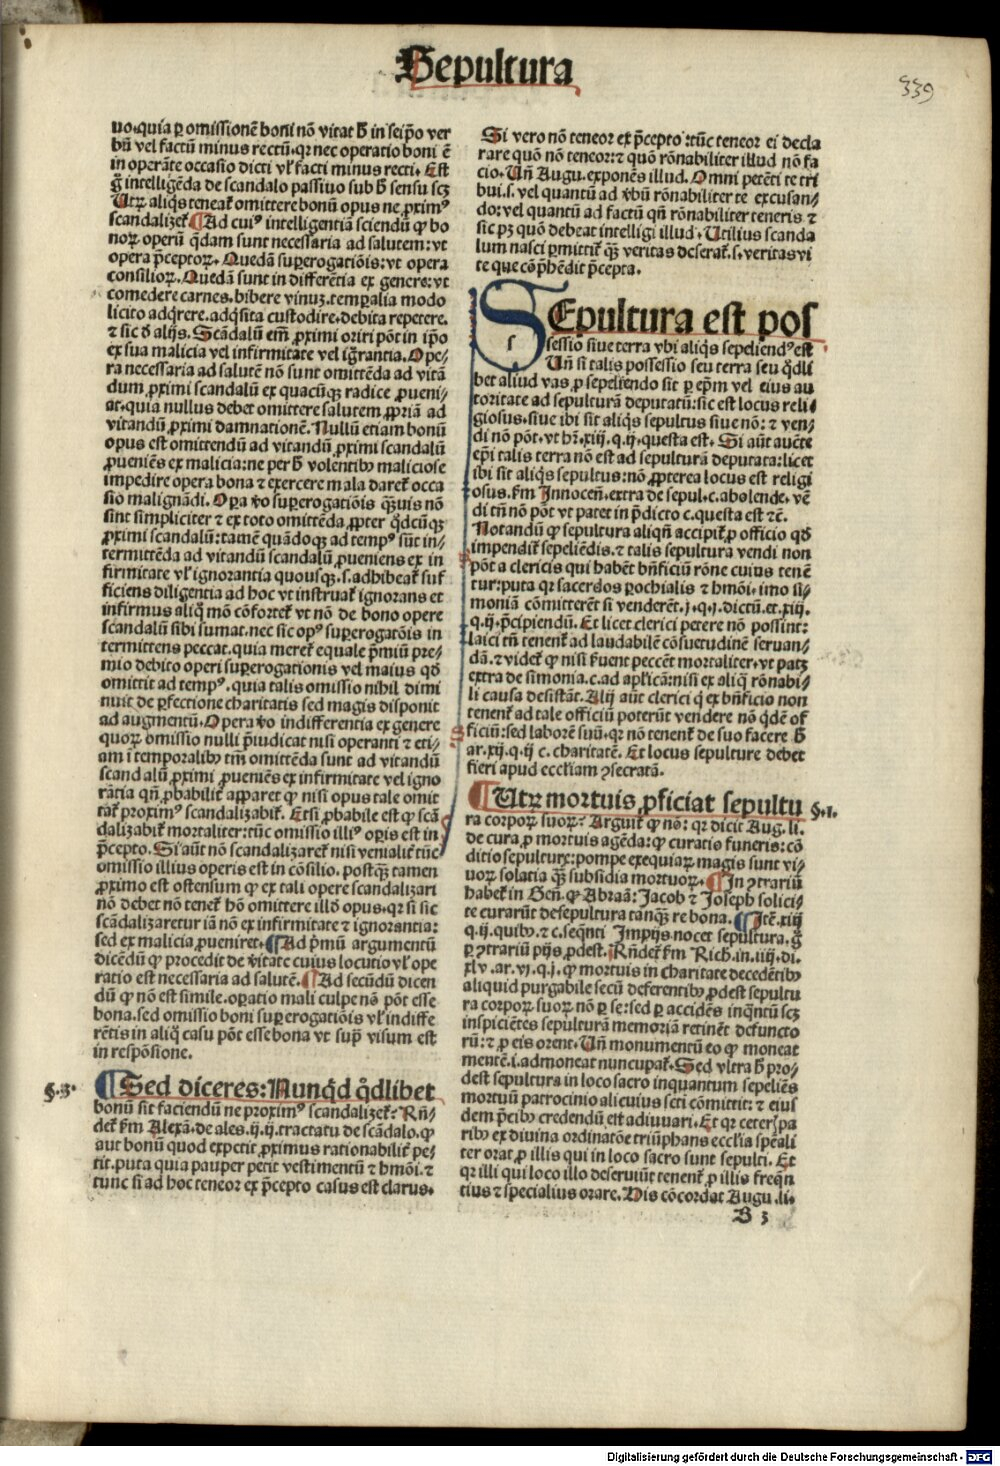 Sepultura
339
uo. quia ꝑ omissionē boni nō vitat h̄ in seip̄o ver
bū vel factū minus rectū. qr nec operatio boni ē
in operāte occasio dicti vl̓ facti minus recti. Est
g̊ intelligēda de scandalo passiuo sub h̄ sensu scꝫ
Utꝝ aliq̇s teneat̃ omittere bonū opus ne ꝓxim⁹
scandalizet̃. ¶ Ad cui⁹ intelligentiā sciendū ꝙ bo
noꝝ operū q̇dam sunt necessaria ad salutem: vt
opera p̄ceptoꝝ. Quedā suꝑerogatiōis: vt opera
consilioꝝ. Quedā sunt in differētia ex genere: vt
comedere carnes. bibere vinuꝫ. temꝑalia modo
licito adq̇rere. adq̇sita custodire. debita repetere.
⁊ sic ď alijs. Scādalū em̄ ꝓximi oriri pōt in ip̄o
ex sua malicia vel infirmitate vel ig̃rantia. Ope⸗
ra necessaria ad salutē nō sunt omittēda ad vitā
dum ꝓximi scandalū ex quacūqꝫ radice ꝓueni⸗
at. quia nullus debet omittere salutem ꝓpriā ad
vitandū ꝓximi damnationē. Nullū etiam bonū
opus est omittendū ad vitandū ꝓximi scandalū
ꝓueniēs ex malicia: ne per h̄ volentibꝰ maliciose
impedire opera bona ⁊ exercere mala daret̃ occa
sio malignādi. Oꝑa v̊o suꝑerogatiōis qȝuis nō
sint simpliciter ⁊ ex toto omittēda ꝓpter q̇dcūqꝫ
ꝓximi scandalū: tamē quādoqꝫ ad temp⁹ sūt in⸗
termittēda ad vitandū scandalū ꝓueniens ex in
firmitate vl̓ ignorantia quousqꝫ .s. adhibeat̃ suf
ficiens diligentia ad hoc vt instruat̃ ignorans et
infirmus aliq̊ mō cōfortet̃ vt nō de bono opere
scandalū sibi sumat. nec sic op⁹ suꝑerogatōis in
termittens peccat. quia meret̃ equale p̄miū pre⸗
mio debito operi suꝑerogationis vel maius qď
omittit ad temp⁹. quia talis omissio nihil dimi
nuit de ꝑfectione charitatis sed magis disponit
ad augmentū. Opera v̊o indifferentia ex genere
quoꝝ omissio nulli p̄iudicat nisi operanti ⁊ eti⸗
am ī temporalibꝰ tm̄ omittēda sunt ad vitandū
scandalū ꝓximi ꝓueniēs ex infirmitate vel igno
rātia qn̄ ꝓbabilit̃ apparet ꝙ nisi opus tale omit
tat̃ proxim⁹ scandalizabit̃. Etsi ꝓbabile est ꝙ scā
dalizabit̃ mortaliter: tūc omissio illi⁹ oꝑis est in
p̄cepto. Si aūt nō scandalizaret̃ nisi venialit̃ tūc
omissio illius operis est in cōsilio. postqȝ tamen
ꝓximo est ostensum ꝙ ex tali opere scandalizari
nō debet nō tenet̃ hō omittere illď opus. qr si sic
scādalizaretur iā nō ex infirmitate ⁊ ignorantia:
sed ex malicia ꝓueniret. ¶ Ad p̄mū argumentū
dicēdū ꝙ procedit de v̓itate cuius locutio vl̓ ope
ratio est necessaria ad salutē. ¶ Ad secūdū dicen
dū ꝙ nō est simile. oꝑatio mali culpe nō pōt esse
bona. sed omissio boni suꝑerogatiōis vl̓ indiffe
rētis in aliq̊ casu pōt esse bona vt sup̃ visum est
in respōsione.
§.3.
¶ Sed diceres: Nunq̇d q̇dlibet
bonū sit faciendū ne proxim⁹ scandalizet̃? Rn̄⸗
det̃ ẜm Alexā. de ales .ij.ij. tractatu de scādalo. ꝙ
aut bonū quod expetit ꝓximus rationabilit̃ pe⸗
tit. puta quia pauper petit vestimentū ⁊ hmōi. ⁊
tunc si ad hoc teneor ex p̄cepto casus est clarus.
Si vero nō teneor ex p̄cepto: tūc teneor ei decla
rare quō nō teneor: ⁊ quō rōnabiliter illud nō fa
cio. Un̄ Augu. exponēs illud. Omni petēti te tri
bui. s. vel quantū ad v̓bū rōnabiliter te excusan⸗
do: vel quantū ad factū qn̄ rōnabiliter teneris ⁊
sic pꝫ quō debeat intelligi illud. Utilius scanda
lum nasci ꝑmittit̃ qȝ veritas deserat̃. s. veritas vi
te que cōp̄hēdit p̄cepta.
SEpultura est pos
sessio siue terra vbi aliq̇s sepeliend⁹ est
Un̄ si talis possessio seu terra seu q̇dli
bet aliud vas ꝓ sepeliendo sit ꝑ ep̄m vel eius au
toritate ad sepulturā deputatū: sic est locus reli⸗
giosus. siue ibi sit aliq̇s sepultus siue nō: ⁊ ven⸗
di nō pōt. vt hr̄. xiij. q. ij. questa est. Si aūt aucte
ep̄i talis terra nō est ad sepulturā deputata: licet
ibi sit aliq̇s sepultus: nō ꝓpterea locus est religi
osus. ẜm Innocen̄. extra de sepul. c. abolende. vē
di tn̄ nō pōt vt patet in p̄dicto c. questa est ⁊c̄.
Notandū ꝙ sepultura aliqn̄ accipit̃ ꝓ officio qď
impendit̃ sepeliēdis. ⁊ talis sepultura vendi non
pōt a clericis qui habēt bn̄ficiū rōne cuius tenē
tur: puta qr sacerdos ꝑochialis ⁊ hmōi. imo si⸗
moniā cōmitterēt si venderēt. j. q. j. dictū. et. xiij.
q. ij. p̄cipiendū. Et licet clerici petere nō possint:
laici tn̄ tenent̃ ad laudabilē cōsuetudinē seruan⸗
dā. ⁊ videt̃ ꝙ nisi ẜuent peccēt mortaliter. vt patꝫ
extra de simonia. c. ad apl̓icā: nisi ex aliq̇ rōnabi⸗
li causa desistāt. Alij aūt clerici q̇ ex bn̄ficio non
tenent̃ ad tale officiū poterūt vendere nō q̇dē of
ficiū: sed laborē suū. qr nō tenent̃ de suo facere h̄
ar. xij. q. ij c. charitatē. Et locus sepulture debet
fieri apud eccl̓iam ꝯsecratā.
¶ Utꝝ mortuis ꝓficiat sepultu
§.1.
ra corpoꝝ suoꝝ? Arguit̃ ꝙ nō: qr dicit Aug. li.
de cura ꝓ mortuis agēda: ꝙ curatis funeris: cō
ditio sepulture: pompe exequiaꝝ magis sunt vi⸗
uoꝝ solatia qȝ subsidia mortuoꝝ. ¶ In ꝯtrariū
habet̃ in Gen̄. ꝙ Abraā: Jacob ⁊ Joseph solici⸗
te curarūt de sepultura tanqȝ re bona. ¶ Itē. xiij
q. ij. quibꝰ. ⁊ c. seq̄nti Impijs nocet sepultura. g̊
ꝑ ꝯtrariū pijs ꝓdest. Rn̄det̃ ẜm Rich. in. iiij. di.
xlv. ar. vj. q. j. ꝙ mortuis in charitate decedētibꝰ
aliquid purgabile secū deferentibꝰ ꝓdest sepultu
ra corpoꝝ suoꝝ nō ꝑ se: sed ꝑ accidēs inq̄ntū scꝫ
inspiciētes sepulturā memoriā retinēt defuncto
rū: ⁊ ꝓ eis orent. Un̄ monumentū eo ꝙ moneat
mentē. i. admoneat nuncupat̃. Sed vltra h̄ pro⸗
dest sepultura in loco sacro inquantum sepeliēs
mortuū patrocinio alicuius scti cōmittit: ⁊ eius
dem p̄cibꝰ credendū est adiuuari. Et qr ceteri pa
ribꝰ ex diuina ordinatōe triūphans eccl̓ia sp̄eali
ter orat ꝓ illis qui in loco sacro sunt sepulti. Et
qr illi qui loco illo deseruiūt tenent̃ ꝓ illis freq̄n
tius ⁊ specialius orare. His cōcordat Augu. li.
B 3
Digitalisierung gefördert durch die Deutsche Forschungsgemeinschaft - DFG